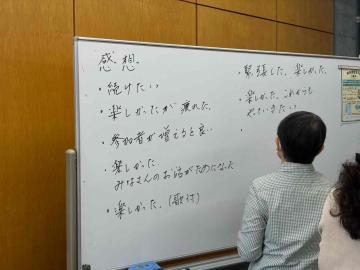 感想
・続けたい
・楽しかったが疲れた。
・参加者が増えると良い
・楽しかった.
みなさんのお話がためになった
・楽しかった。(取付)
・緊張した。楽しかった。
・楽しかった。これからも
やっていきたい
・